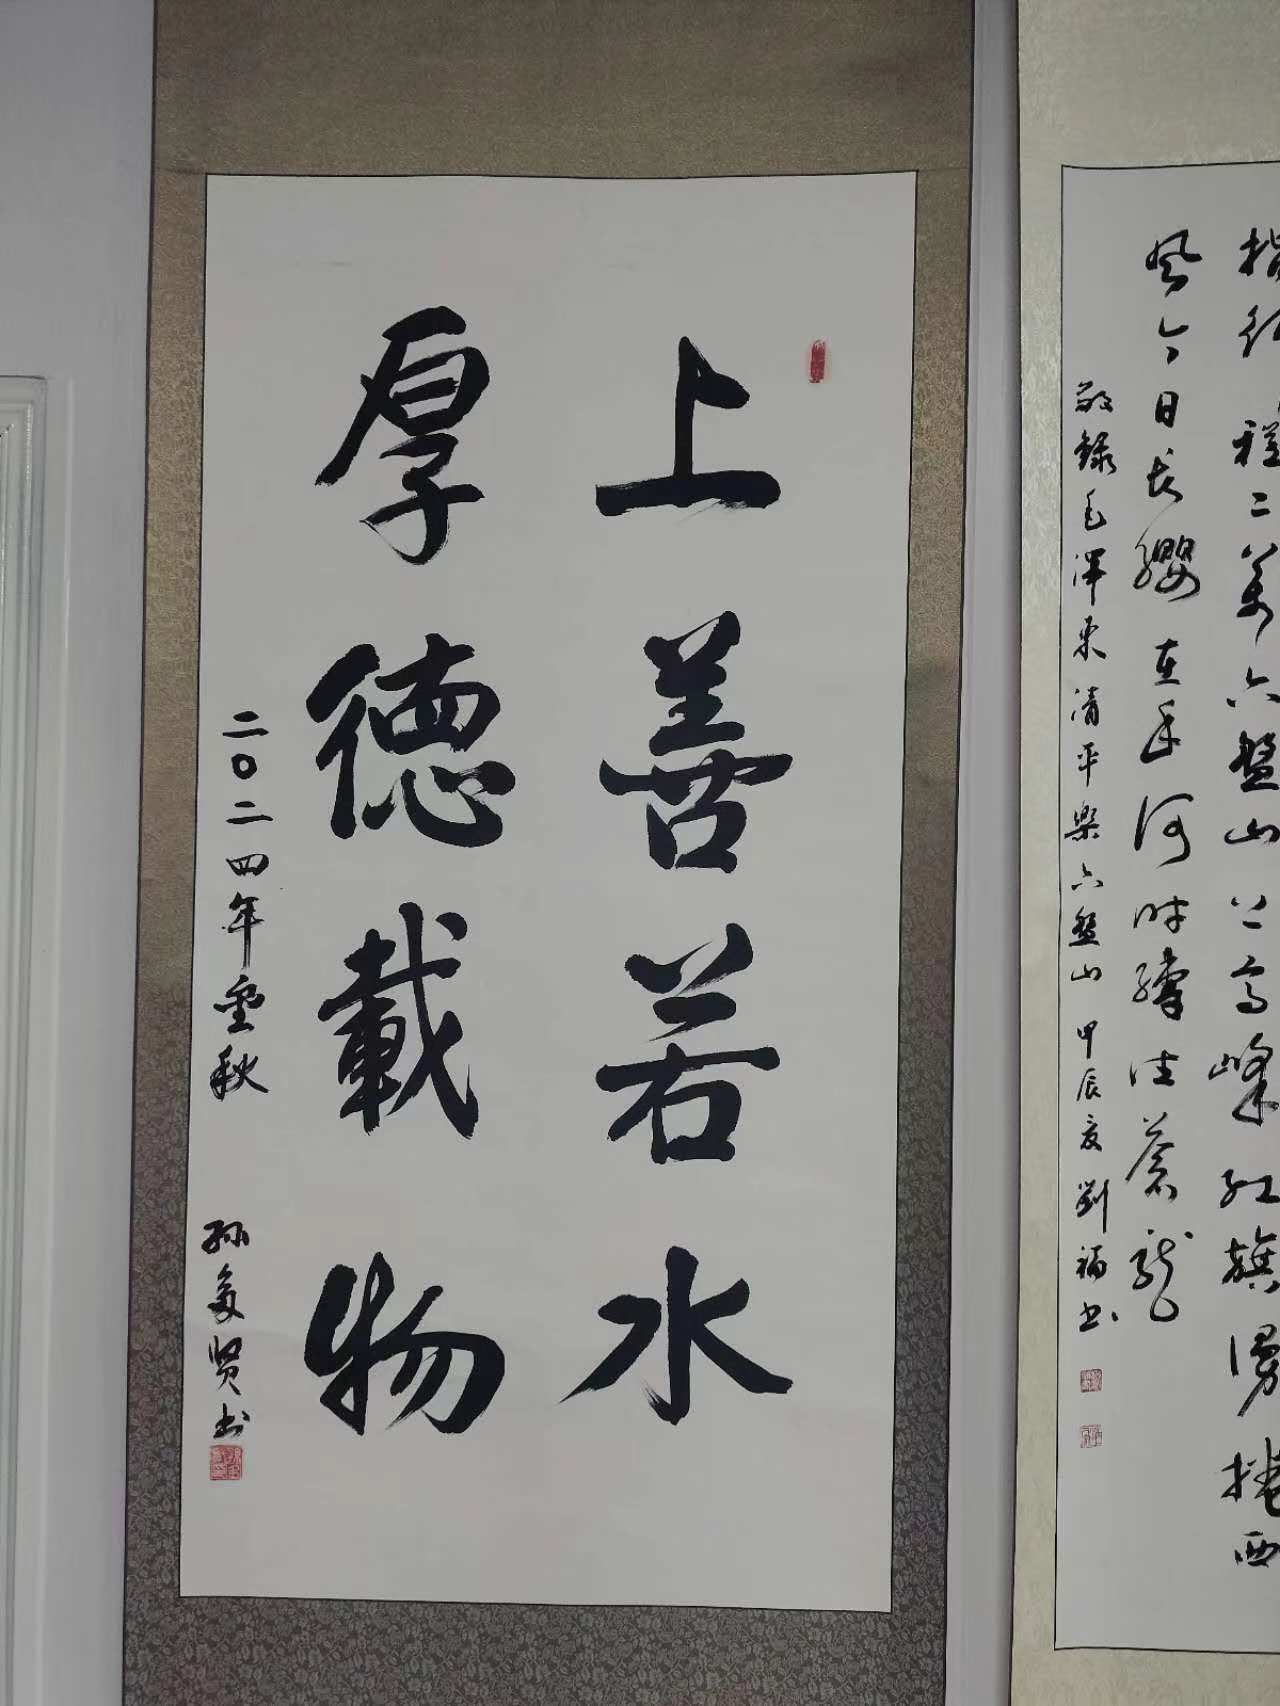 指行程二萬六盤山上高峰红旗漫捲西
风今日长纓在手何时缚住蒼龙
敬錄毛泽东清平樂六盤山 甲辰夏劉福书
上善若水
厚德載物
二〇二四年秋
孙贤书